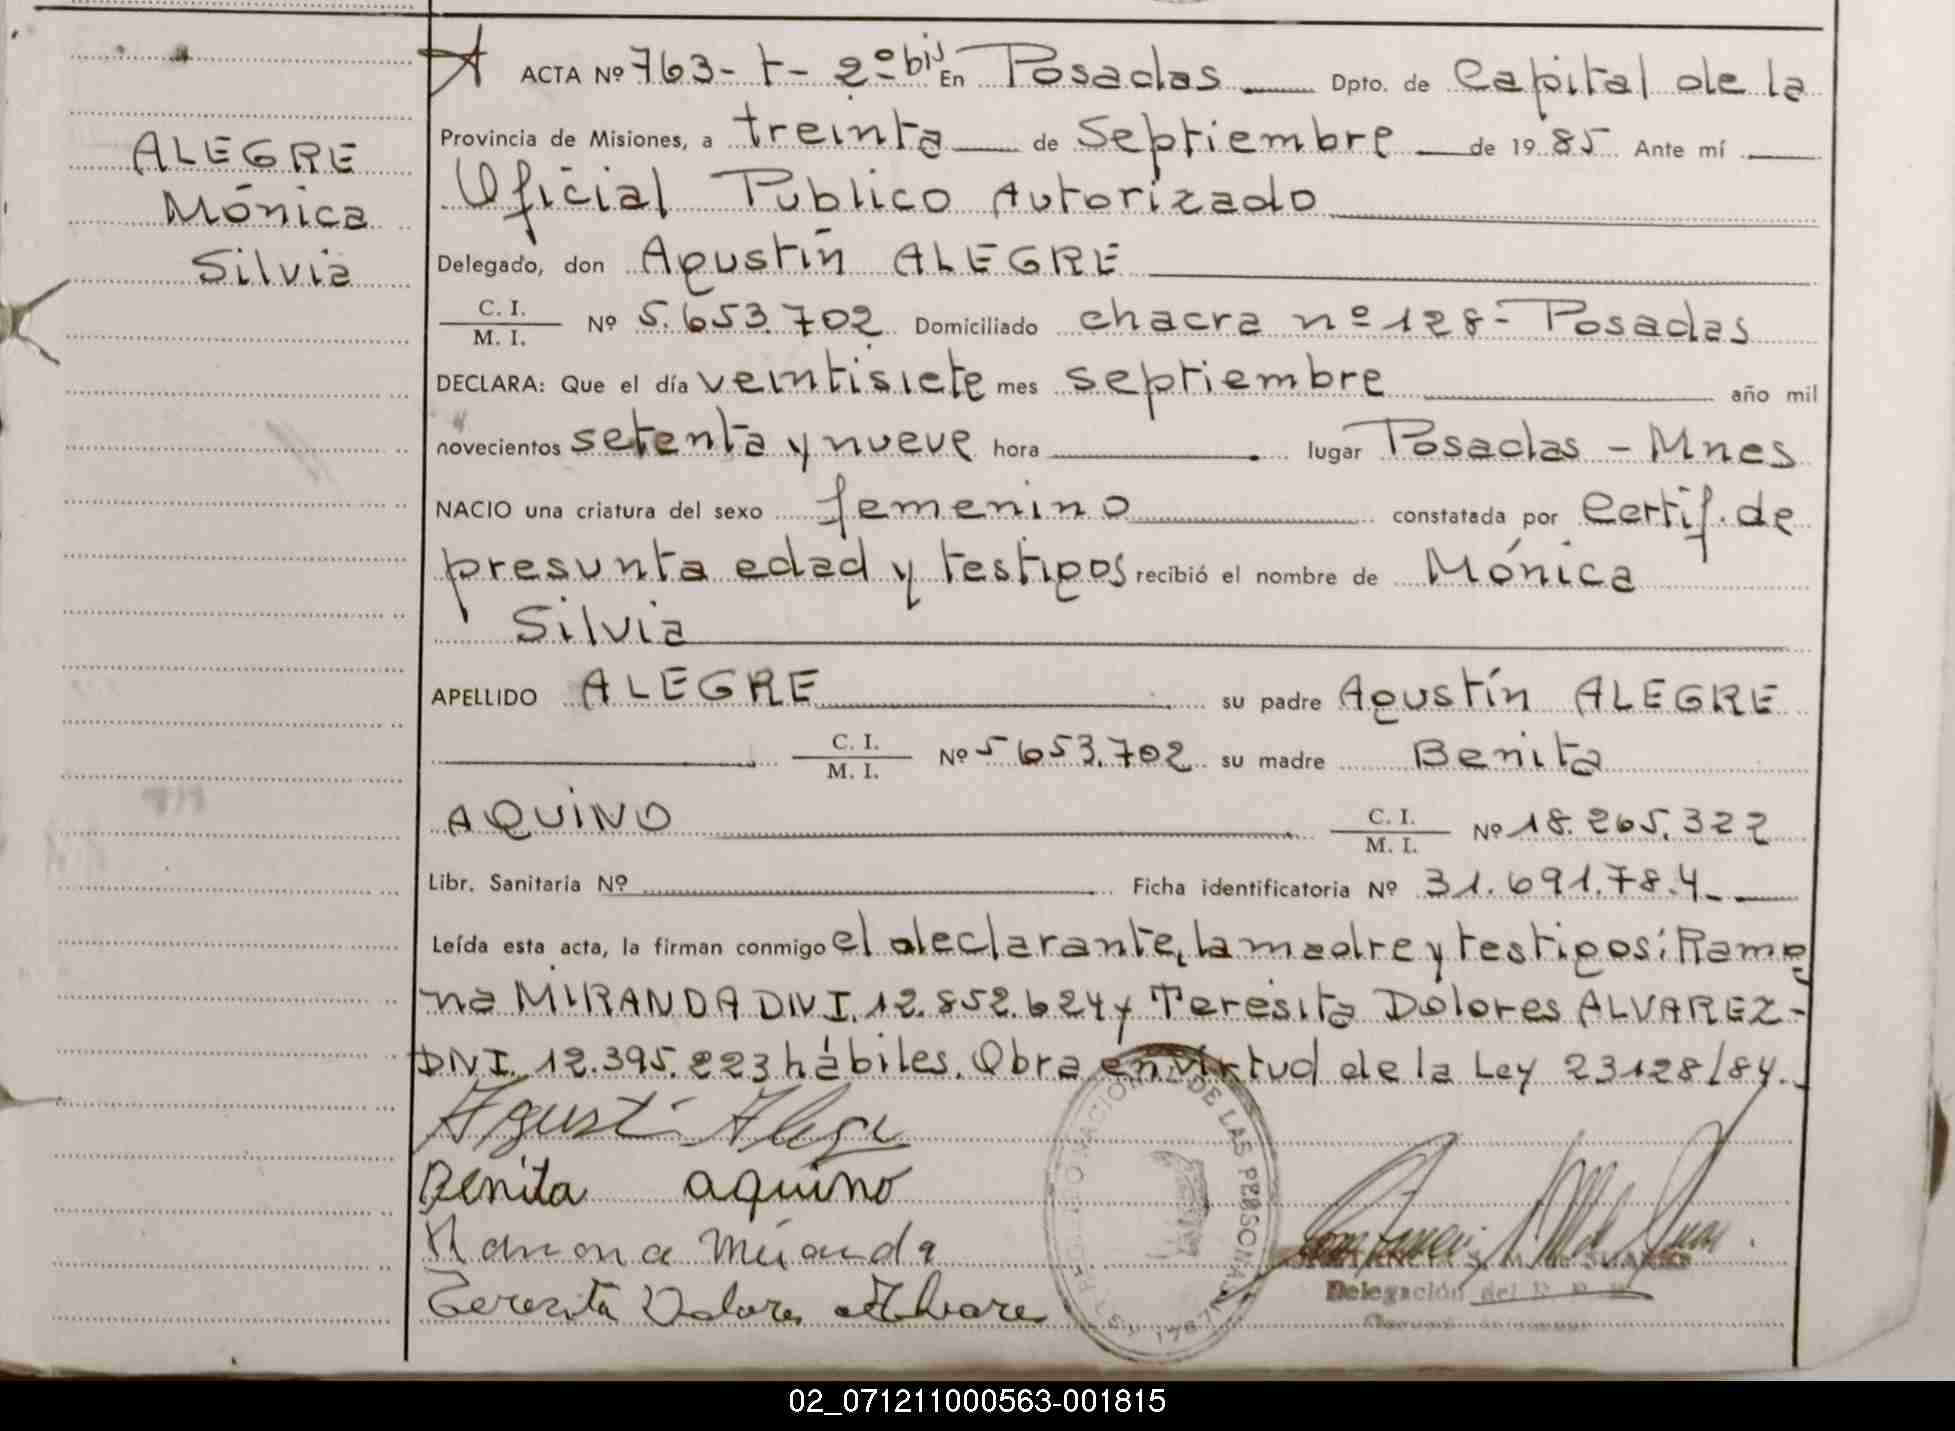 ACTA Nº 763-t-2º bis En Posadas Dpto. de Capital de la
Provincia de Misiones, a treinta de Septiembre de 1985 Ante mí
Oficial Público Autorizado
Delegado, don Agustín ALEGRE
C. I.
M. I.
Nº 5.653.702 Domiciliado chacra nº 128 - Posadas
DECLARA: Que el día veintisiete mes septiembre año mil
novecientos setenta y nueve hora lugar Posadas - Mnes
NACIO una criatura del sexo femenino constatada por Certif. de
presunta edad y testigos recibió el nombre de Mónica
Silvia
APELLIDO ALEGRE su padre Agustín ALEGRE
C. I.
M. I.
Nº 5653.702 su madre Benita
AQUINO
C. I.
M. I.
Nº 18.265.322
Libr. Sanitaria Nº Ficha identificatoria Nº 31.691.784
Leída esta acta, la firman conmigo el declarante, la madre y testigos: Ramo
na MIRANDA DNI. 12.852.624 y Teresita Dolores ALVAREZ-
DNI. 12.395.223 hábiles. Obra en virtud de la Ley 23128/84.
ALEGRE
Mónica
Silvia
Agustí Alegre
Benita aquino
Ramona Miranda
Teresita Dolores Alvare
DE LAS PERSONAS
Delegación del
02_071211000563-001815